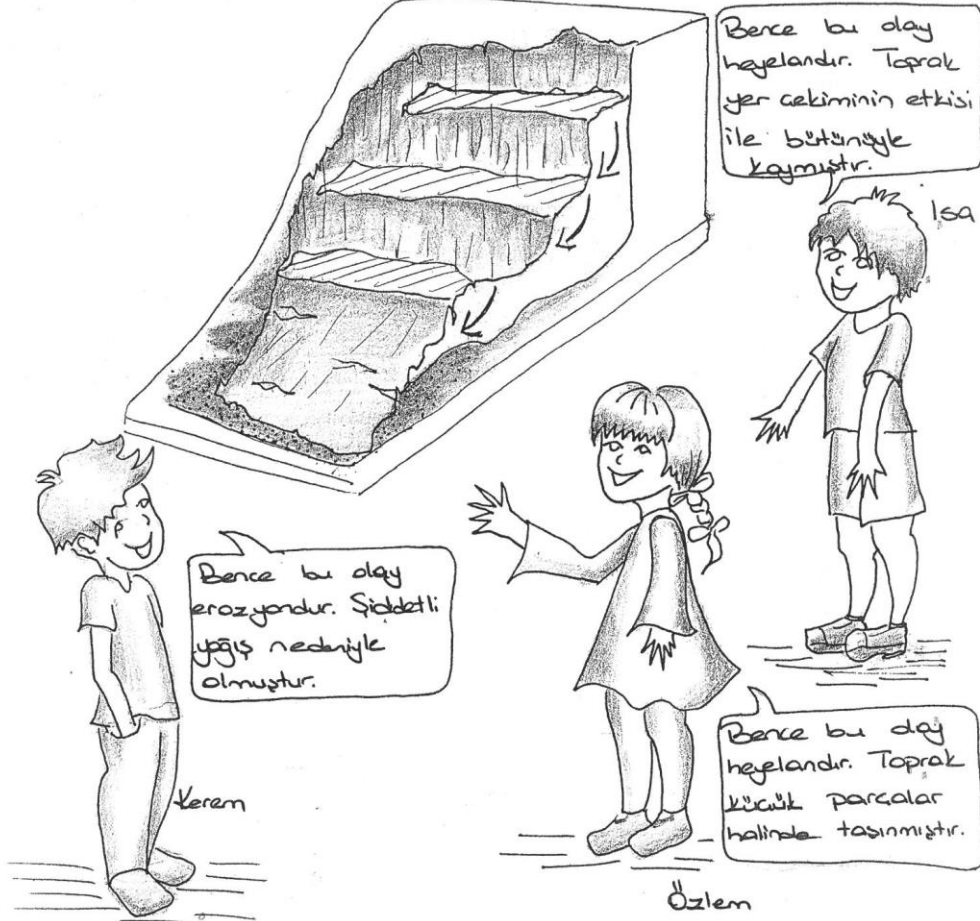 Bence bu olay
heyelandır. Toprak
yer çekiminin etkisi
ile bütünüyle
kaymıştır.
İsa
Bence bu olay
erozyondur. Şiddetli
yağış nedeniyle
olmuştur.
Kerem
Bence bu olay
heyelandır. Toprak
küçük parçalar
halinde taşınmıştır.
Özlem